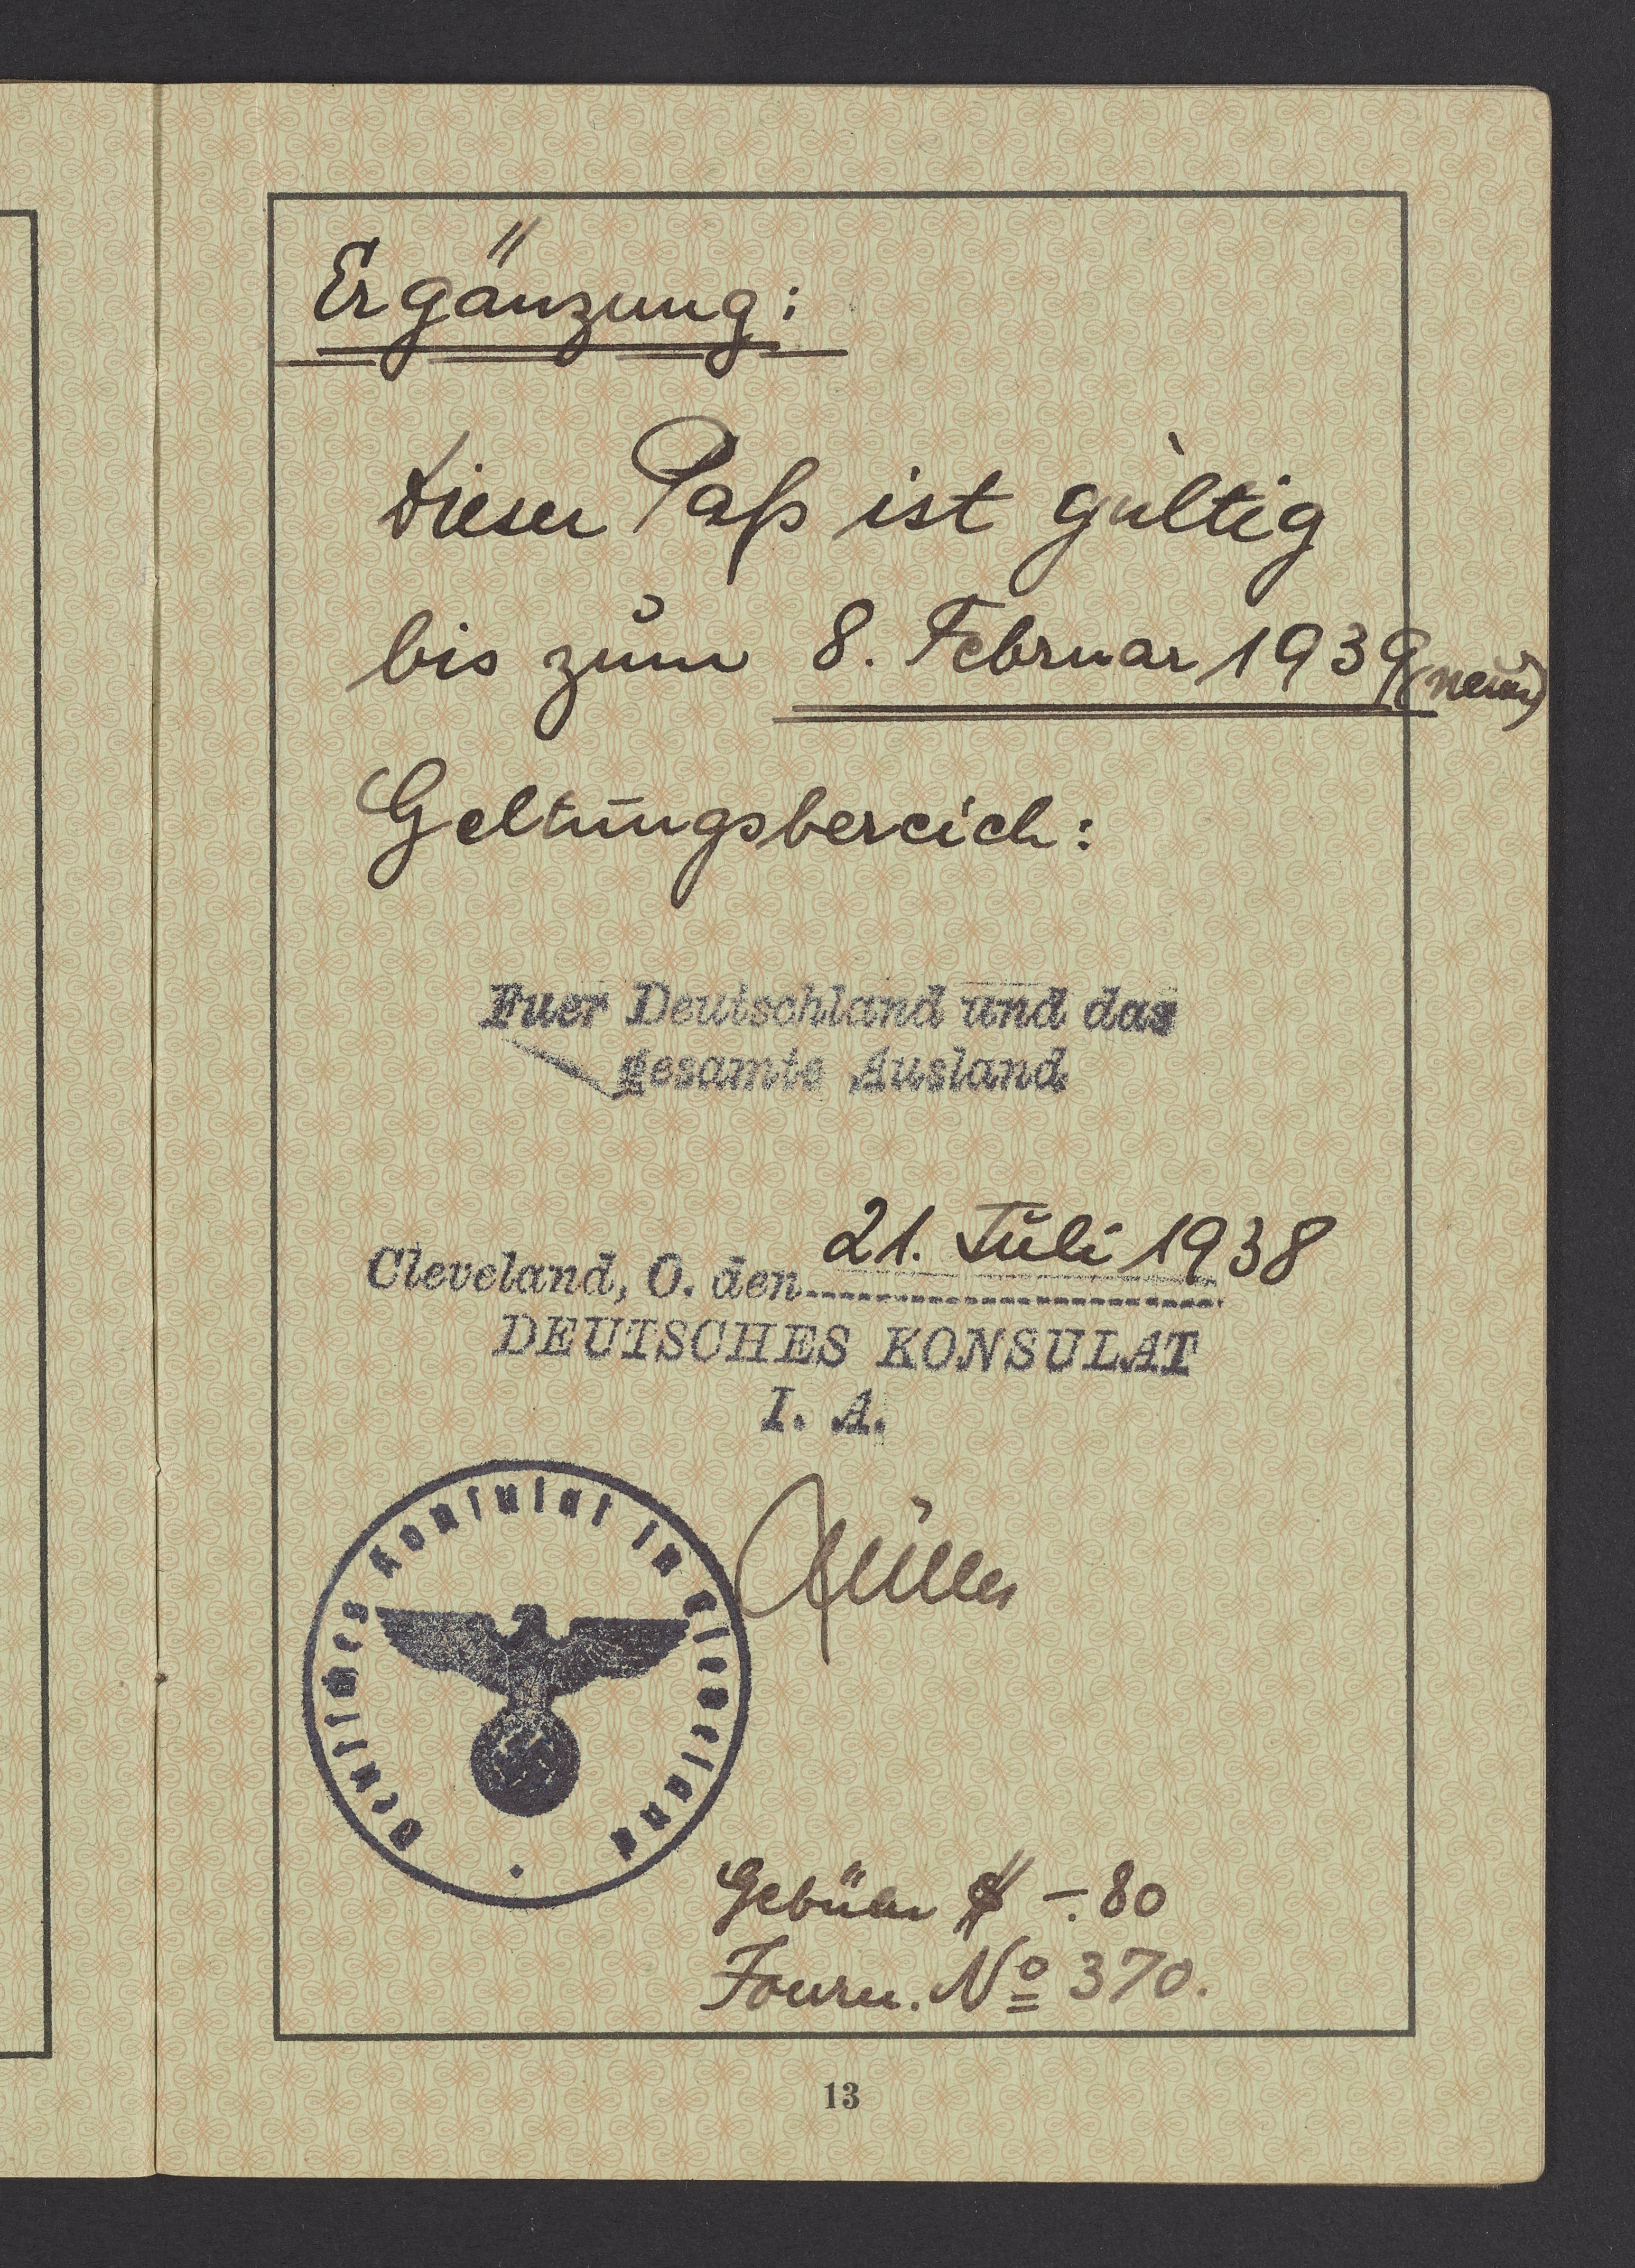 Ergänzung:
Dieser Paß ist gültig
bis zum 8. Februar 1939 (neun)
Geltungsbereich:
Fuer Deutschland und das
gesamte Ausland
Cleveland, O. den 21. Juli 1938
DEUTSCHES KONSULAT
I. A.
Müller
Deutsches Konsulat in Cleveland
Gebühr $ -.80
Journ. No 370.
13